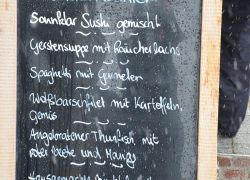 Sownldar Sushi gemischt
Gerstensuppe mit Räucherlachs
Spaghetti mit Garnelen
Wolfsbarschfilet mit Kartoffeln,
Gemüs
Angebratener Thunfisch mit
roter beete und Mango